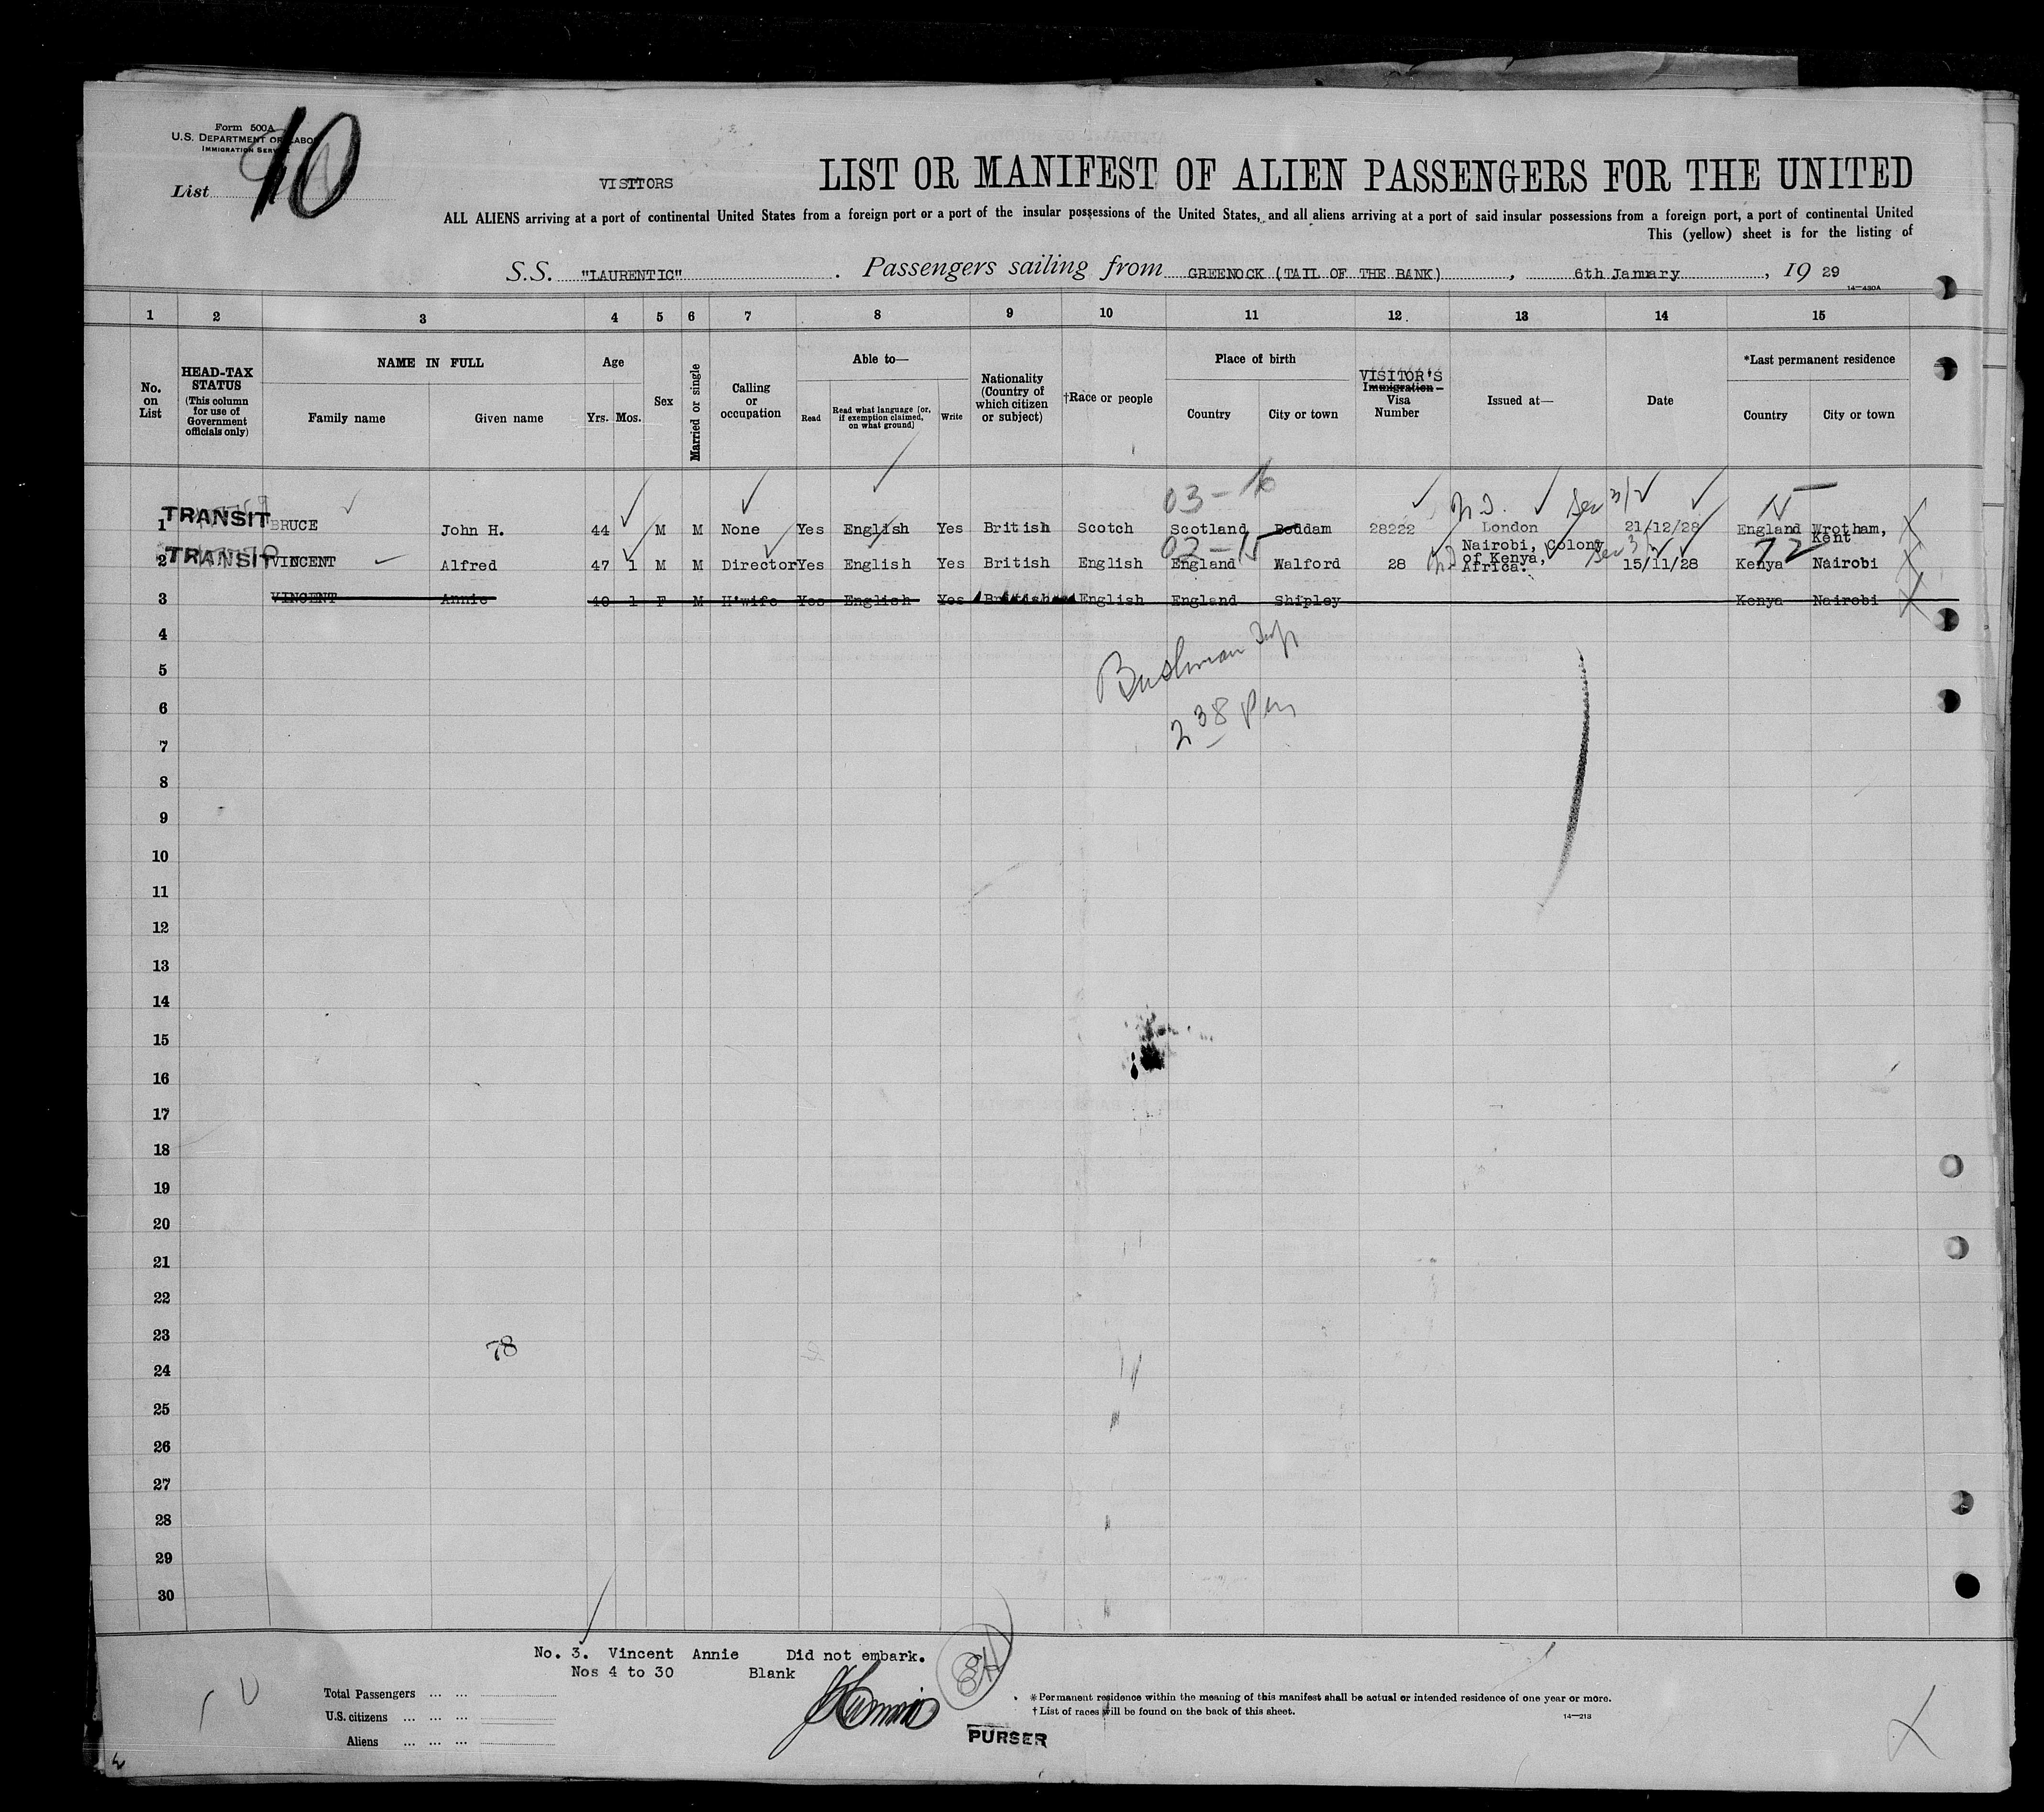 Form 500A
U.S. DEPARTMENT OF LABOR
IMMIGRATION SERVICE
List 10
VISITORS
LIST OR MANIFEST OF ALIEN PASSENGERS FOR THE UNITED
ALL ALIENS arriving at a port of continental United States from a foreign port or a port of the insular possessions of the United States, and all aliens arriving at a port of said insular possessions from a foreign port, a port of continental United
This (yellow) sheet is for the listing of
S.S. "LAURENTIC" . Passengers sailing from GREENOCK (TAIL OF THE BANK) , 6th January , 19 29
14—430A
1 2 3 4 5 6 7 8 9 10 11 12 13 14 15
No. on List
HEAD-TAX STATUS (This column for use of Government officials only)
NAME IN FULL
Family name Given name
Age
Yrs. Mos.
Sex
Married or single
Calling or occupation
Able to—
Read Read what language [or, if exemption claimed, on what ground] Write
Nationality (Country of which citizen or subject)
†Race or people
Place of birth
Country City or town
VISITOR'S
Immigration
Visa Number
Issued at—
Date
*Last permanent residence
Country City or town
03-16
1 TRANSIT BRUCE John H. 44 M M None Yes English Yes British Scotch Scotland Boddam 28222 London 21/12/28 England Wrotham, Kent
02-15
72
2 TRANSIT VINCENT Alfred 47 1 M M Director Yes English Yes British English England Walford 28 Nairobi, Colony of Kenya, Africa. 15/11/28 Kenya Nairobi
3 VINCENT Annie 40 1 F M H'wife Yes English Yes British English England Shipley Kenya Nairobi
4
Bushman
5
6
238
7
8
9
10
11
12
13
14
15
16
17
18
19
20
21
22
23
78
24
25
26
27
28
29
30
No. 3. Vincent Annie Did not embark.
Nos 4 to 30 Blank
Total Passengers ... ...
U.S. citizens ... ... ...
Aliens ... ... ...
PURSER
* Permanent residence within the meaning of this manifest shall be actual or intended residence of one year or more.
† List of races will be found on the back of this sheet.
14—213